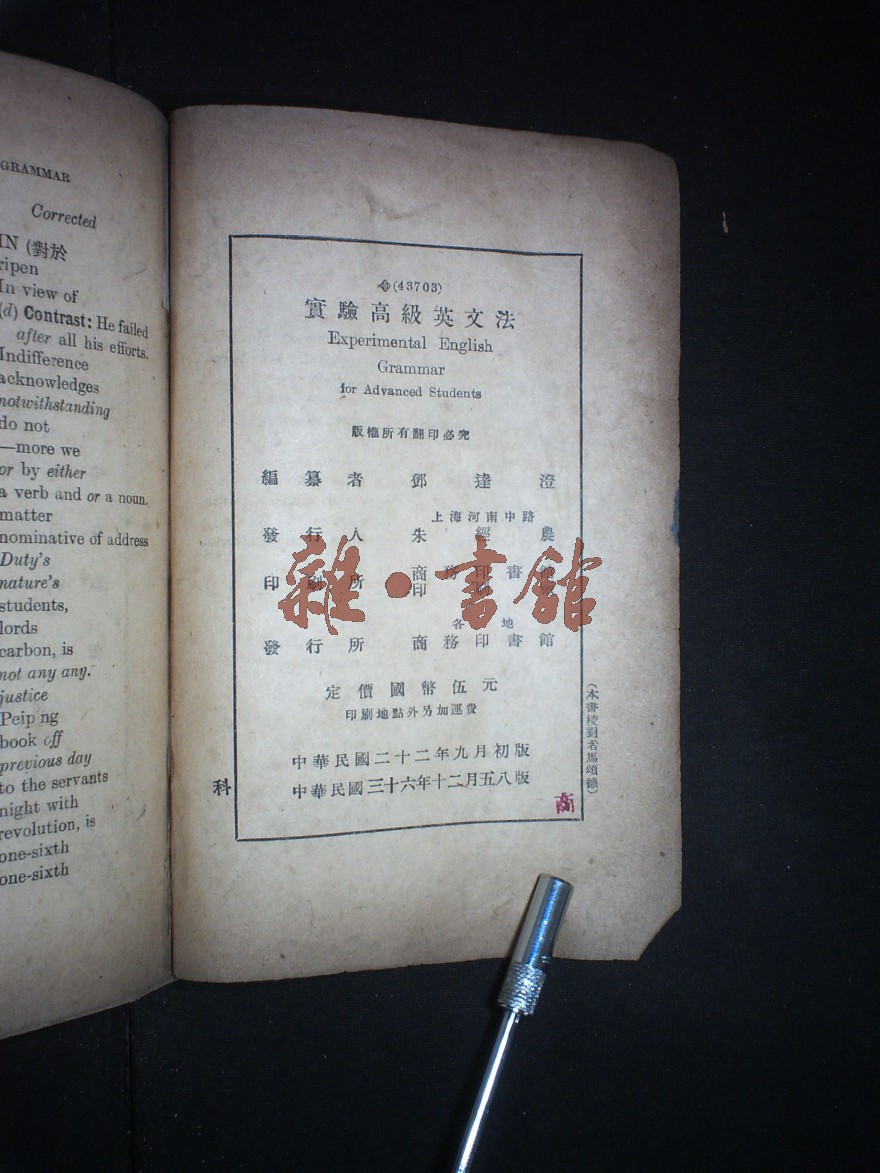 GRAMMAR
Corrected
IN (對於
ripen
In view of
(d) Contrast: He failed
after all his efforts.
Indifference
acknowledges
notwithstanding
do not
—more we
or by either
a verb and or a noun.
matter
nominative of address
Duty's
nature's
students,
lords
carbon, is
not any any.
justice
Peip ng
book off
previous day
to the servants
night with
revolution, is
one-sixth
one-sixth
(43703)
實驗高級英文法
Experimental English
Grammar
for Advanced Students
版權所有翻印必究
編纂者 鄧達澄
上海河南中路
發行人 朱經農
印刷所 商務印書館
印
各地
發行所 商務印書館
定價國幣伍元
印刷地點外另加運費
中華民國二十二年九月初版
中華民國三十六年十二月五八版
商
科
(本書校對者馬頌德)
雜·書館